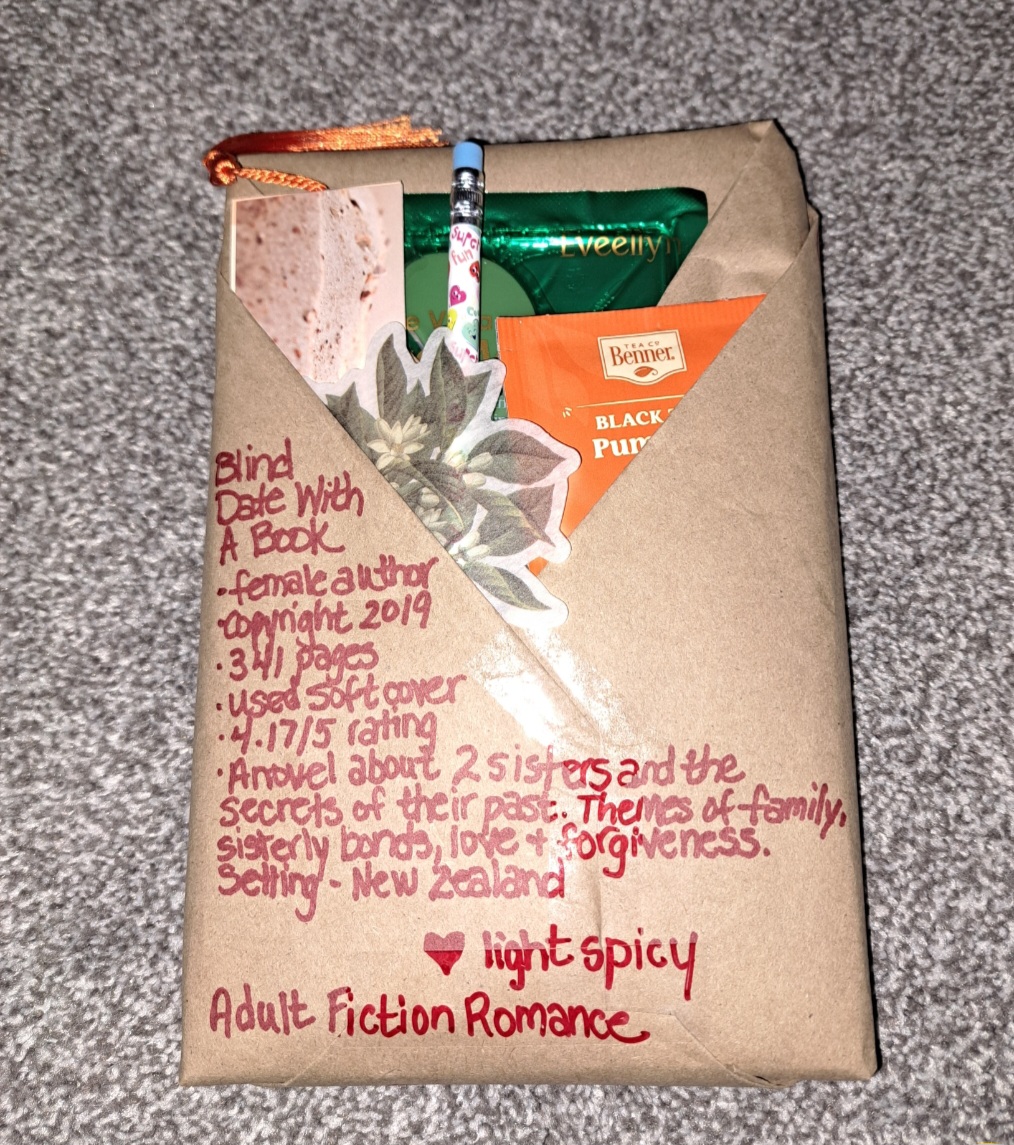 super
fun
LVeelly
TEA CO
Benner.
BLACK
Blind
Date With
A Book
• female author
•copyright 2019
• 341 pages
• used soft cover
• 4.17/5 rating
• A novel about 2 sisters and the
secrets of their past. Themes of family,
sisterly bonds, love + forgiveness.
Setting - New Zealand
♥ light spicy
Adult Fiction Romance